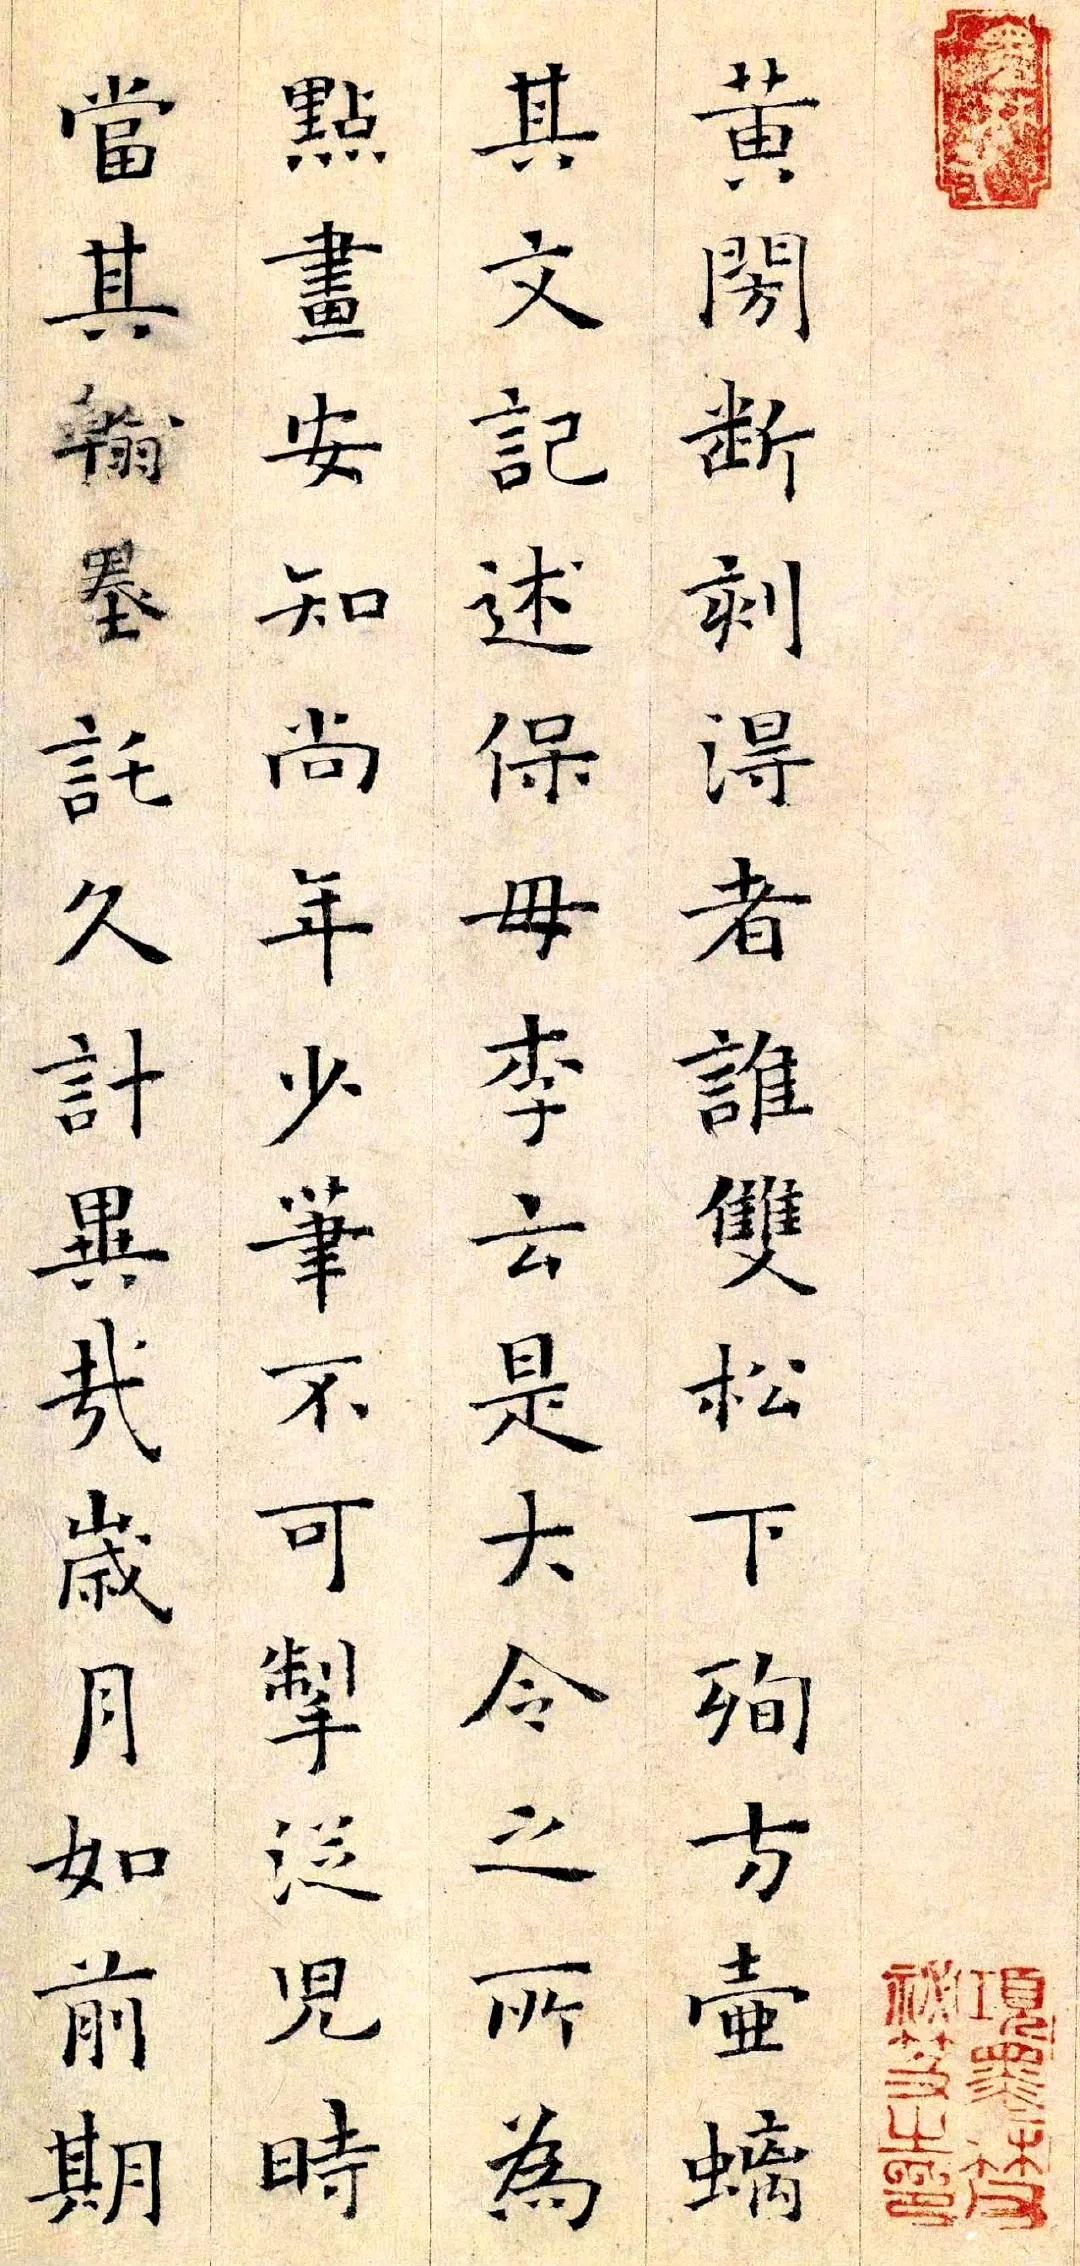 黄閍断刻淂者誰雙松下殉方壷螭
其文記述保母李云是大令之所為
點畫安知尚年少筆不可掣從児時
當其翰墨託久計異哉歳月如前期
項墨林父
秘笈之印